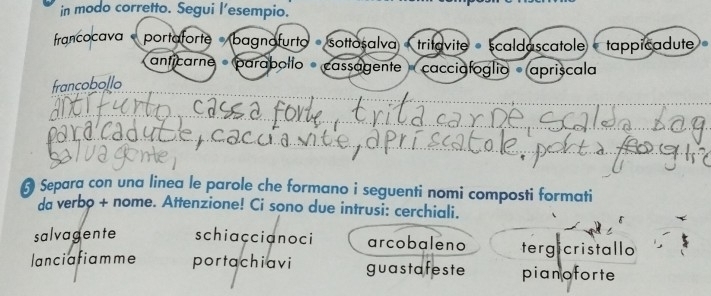 in modo corretto. Segui l'esempio.
francocava • portaforte • bagnafurto • sottosalva • tritavite • scaldascatole • tappicadute •
anticarne • parabollo • cassagente • cacciafoglio • apriscala
francobollo
antifurto, cassaforte, trita carne, scalda bag
paracadute, cacciavite, apriscatole, porta foglio
salvagente,
5 Separa con una linea le parole che formano i seguenti nomi composti formati
da verbo + nome. Attenzione! Ci sono due intrusi: cerchiali.
salvagente schiaccianoci arcobaleno tergicristallo
lanciafiamme portachiavi guastafeste pianoforte